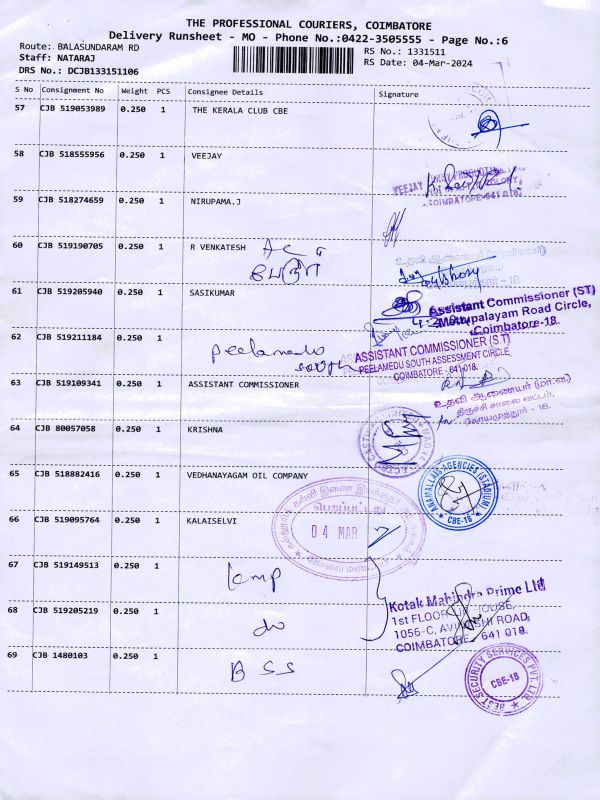 THE PROFESSIONAL COURIERS, COIMBATORE
Delivery Runsheet - MO - Phone No.:0422-3505555 - Page No.:6
Route: BALASUNDARAM RD
RS No.: 1331511
Staff: NATARAJ
RS Date: 04-Mar-2024
DRS No.: DCJB133151106
S No Consignment No Weight PCS Consignee Details Signature
57 CJB 519053989 0.250 1 THE KERALA CLUB CBE
58 CJB 518555956 0.250 1 VEEJAY
VEEJAY
COIMBATORE-641 018.
59 CJB 518274659 0.250 1 NIRUPAMA.J
60 CJB 519190705 0.250 1 R VENKATESH
உதவி ஆணையர்
61 CJB 519205940 0.250 1 SASIKUMAR
Assistant Commissioner (ST)
Mettupalayam Road Circle,
Coimbatore-18.
62 CJB 519211184 0.250 1 Peelamedu
south
ASSISTANT COMMISSIONER (S.T)
PEELAMEDU SOUTH ASSESSMENT CIRCLE
COIMBATORE - 641 018.
63 CJB 519109341 0.250 1 ASSISTANT COMMISSIONER
உதவி ஆணையர் (மா.வ)
திருச்சி சாலை வட்டம்,
கோயமுத்தூர் - 18.
64 CJB 80057058 0.250 1 KRISHNA
65 CJB 518882416 0.250 1 VEDHANAYAGAM OIL COMPANY
ANAMALLAIS AGENCIES (STADIUM)
CBE-18
66 CJB 519095764 0.250 1 KALAISELVI
04 MAR
67 CJB 519149513 0.250 1 kmp
Kotak Mahindra Prime Ltd
1st FLOOR HOUSE,
1056-C, AVINASHI ROAD,
COIMBATORE - 641 018.
68 CJB 519205219 0.250 1 do
69 CJB 1480103 0.250 1 B S S
BEST SECURITY SERVICES PVT. LTD.
CBE-18